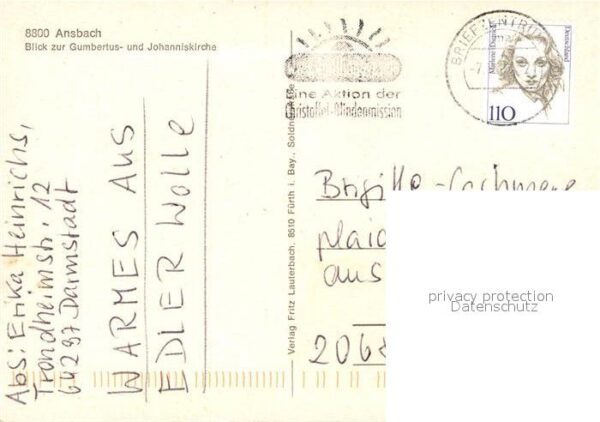 8800 Ansbach
Blick zur Gumbertus- und Johanniskirche
Abs: Erika Heinrichs,
Trondheimstr. 12
64297 Darmstadt
WARMES AUS
EDLER WOLLE
Verlag Fritz Lauterbach, 8510 Fürth i. Bay., Soldnerstraße
Eine Aktion der
Christoffel-Blindenmission
BRIEFZENTRUM
Deutschland
110
Brigitte-Cashmere
plaid
aus
2068
privacy protection
Datenschutz